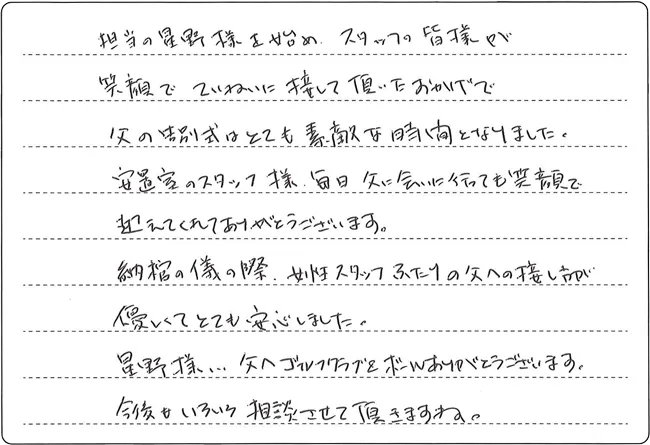 担当の星野様を始め、スタッフの皆様が
笑顔で ていねいに 接して 頂いたおかげで
父の告別式はとても素敵な時間となりました。
安置室のスタッフ様、毎日 父に会いに行っても笑顔で
迎えてくれてありがとうございます。
納棺の儀の際、女性スタッフふたりの父への接し方が
優しくてとても安心しました。
星野様… 父へゴルフクラブとボールありがとうございます。
今後もいろいろ相談させて頂きますね。